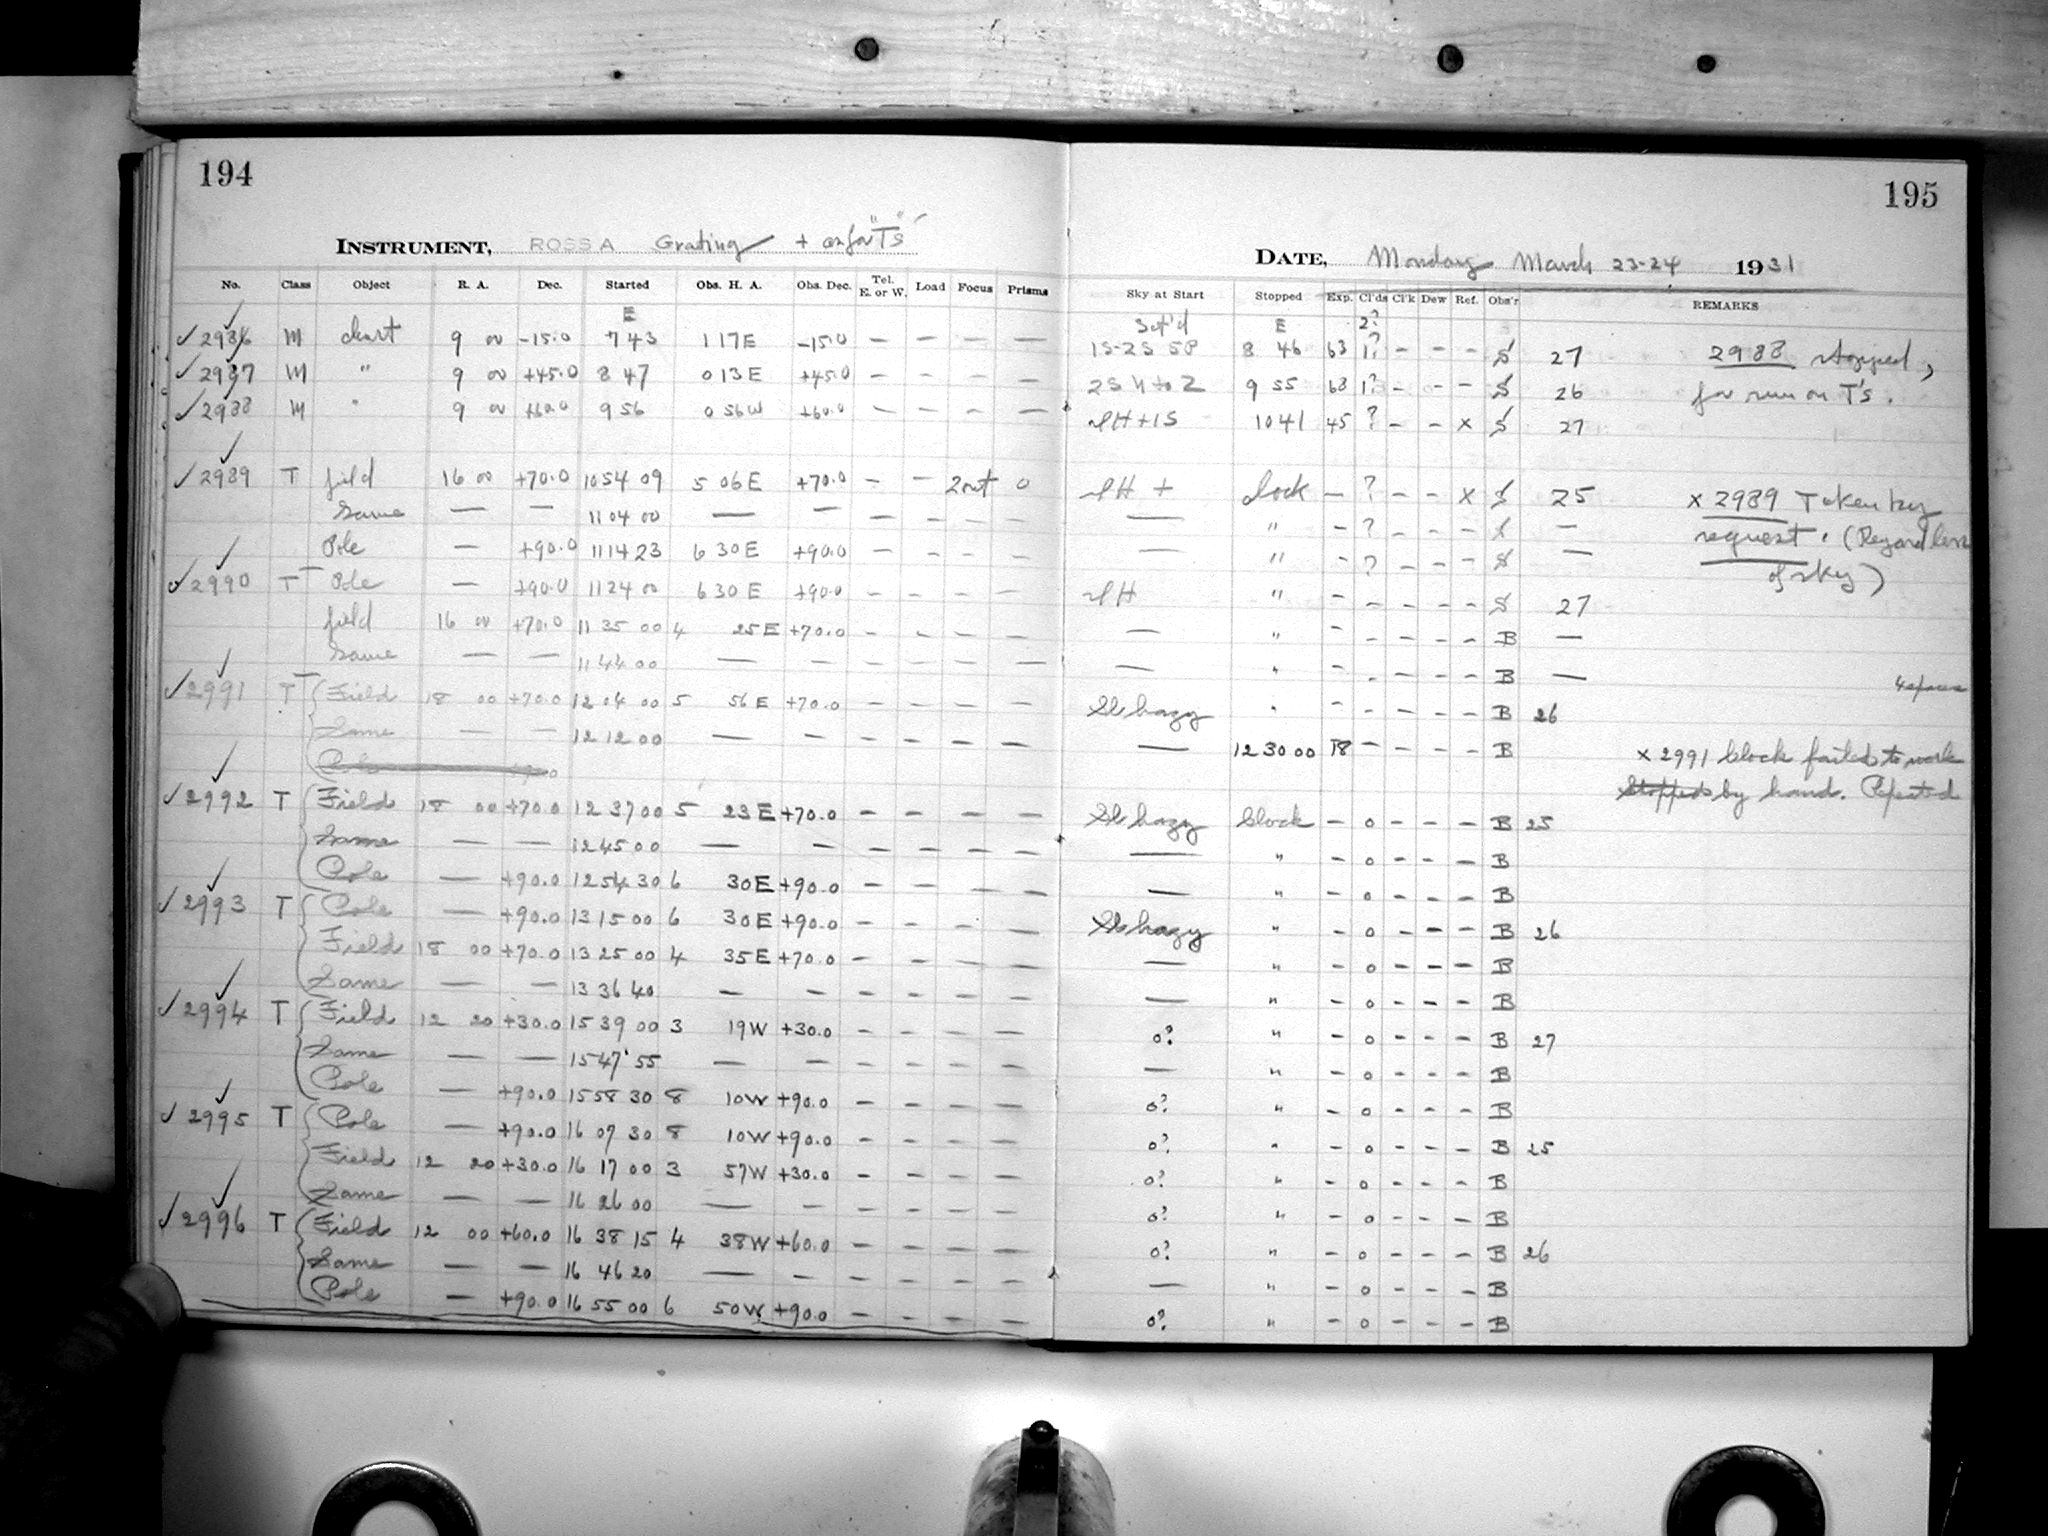 194
195
INSTRUMENT, ROSS A Grating + on for "T's"
DATE, Monday March 23-24 1931
No. Class Object R. A. Dec. Started Obs. H. A. Obs. Dec. Tel. E. or W. Load Focus Prisms Sky at Start Stopped Exp. Cl'ds Cl'k Dew Ref. Obs'r REMARKS
E E 2?
✓ 2986 M chart 9 00 -15.0 7 43 1 17E -15.0 — — — — 1S-2S SP 8 46 63 1? - - - S 27 2988 stopped,
✓ 2987 M " 9 00 +45.0 8 47 0 13E +45.0 — — — — 2S h to Z 9 55 68 1? - - - S 26 for run on T's.
✓ 2988 M " 9 00 +60.0 9 56 0 56W +60.0 — — — — H+1S 10 41 45 ? - - x S 27
✓ 2989 T field 16 00 +70.0 10 54 09 5 06E +70.0 — — 2out 0 H + clock — ? - - x S 25 x 2989 Taken by
Same — — 11 04 00 — — — — — — — " - ? - - - S — request. (Regardless
Pole — +90.0 11 14 23 6 30E +90.0 — — — — — " - ? - - - S — of sky)
✓ 2990 T Pole — +90.0 11 24 00 6 30 E +90.0 — — — — H " - - - - - S 27
field 16 00 +70.0 11 35 00 4 25 E +70.0 — — — — — " - - - - - B —
Same — — 11 44 00 — — — — — — — " - - - - - B —
4 spaces
✓ 2991 T Field 18 00 +70.0 12 04 00 5 56 E +70.0 — — — — Sl hazy " - - - - - B 26
Same — — 12 12 00 — — — — — — — 12 30 00 18 - - - - B x 2991 Clock failed to work
Pole
Stopped by hand. Repeated
✓ 2992 T Field 18 00 +70.0 12 37 00 5 23 E +70.0 — — — — Sl hazy Clock - 0 - - - B 25
Same — — 12 45 00 — — — — — — — " - 0 - - - B
Pole — +90.0 12 54 30 6 30E +90.0 — — — — — " - 0 - - - B
✓ 2993 T Pole — +90.0 13 15 00 6 30E +90.0 — — — — Sl hazy " - 0 - - - B 26
Field 18 00 +70.0 13 25 00 4 35E +70.0 — — — — — " - 0 - - - B
Same — — 13 36 40 — — — — — — — " - 0 - - - B
✓ 2994 T Field 12 20 +30.0 15 39 00 3 19W +30.0 — — — — 0? " - 0 - - - B 27
Same — — 15 47 55 — — — — — — — " - 0 - - - B
Pole — +90.0 15 58 30 8 10W +90.0 — — — — 0? " - 0 - - - B
✓ 2995 T Pole — +90.0 16 07 30 8 10W +90.0 — — — — 0? " - 0 - - - B 25
Field 12 20 +30.0 16 17 00 3 57W +30.0 — — — — 0? " - 0 - - - B
Same — — 16 26 00 — — — — — — 0? " - 0 - - - B
✓ 2996 T Field 12 00 +60.0 16 38 15 4 38W +60.0 — — — — 0? " - 0 - - - B 26
Same — — 16 46 20 — — — — — — — " - 0 - - - B
Pole — +90.0 16 55 00 6 50W +90.0 — — — — 0? " - 0 - - - B